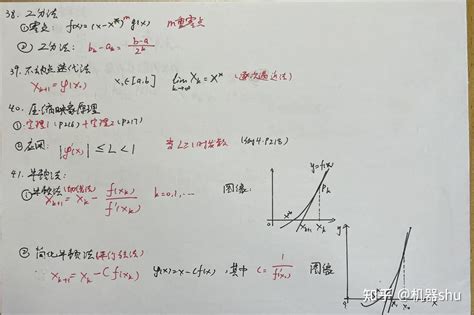 38. 二分法
①零点 f(x)=(x-x*)^m g(x) m重零点
② 二分法: b_k-a_k=\frac{b-a}{2^k}
39. 不动点迭代法
x_{k+1}=φ(x_k) x_0∈[a,b] lim_{k→∞} x_k=x* (逐次逼近法)
40. 压缩映象原理
①定理1(P216)+定理2(P217)
②应用: |φ'(x)|≤L<1 当L≥1时发散 (例4.P218)
41. 牛顿法:
①牛顿法(切线法)
x_{k+1}=x_k-\frac{f(x_k)}{f'(x_k)} k=0,1,… 图像:
y=f(x)
P_k
x* x_{k+1} x_k x
② 简化牛顿法(平行弦法)
x_{k+1}=x_k-Cf(x_k) φ(x)=x-Cf(x), 其中 C=\frac{1}{f'(x_0)} 图像
y
0 x_0 x
知乎 @机器shu